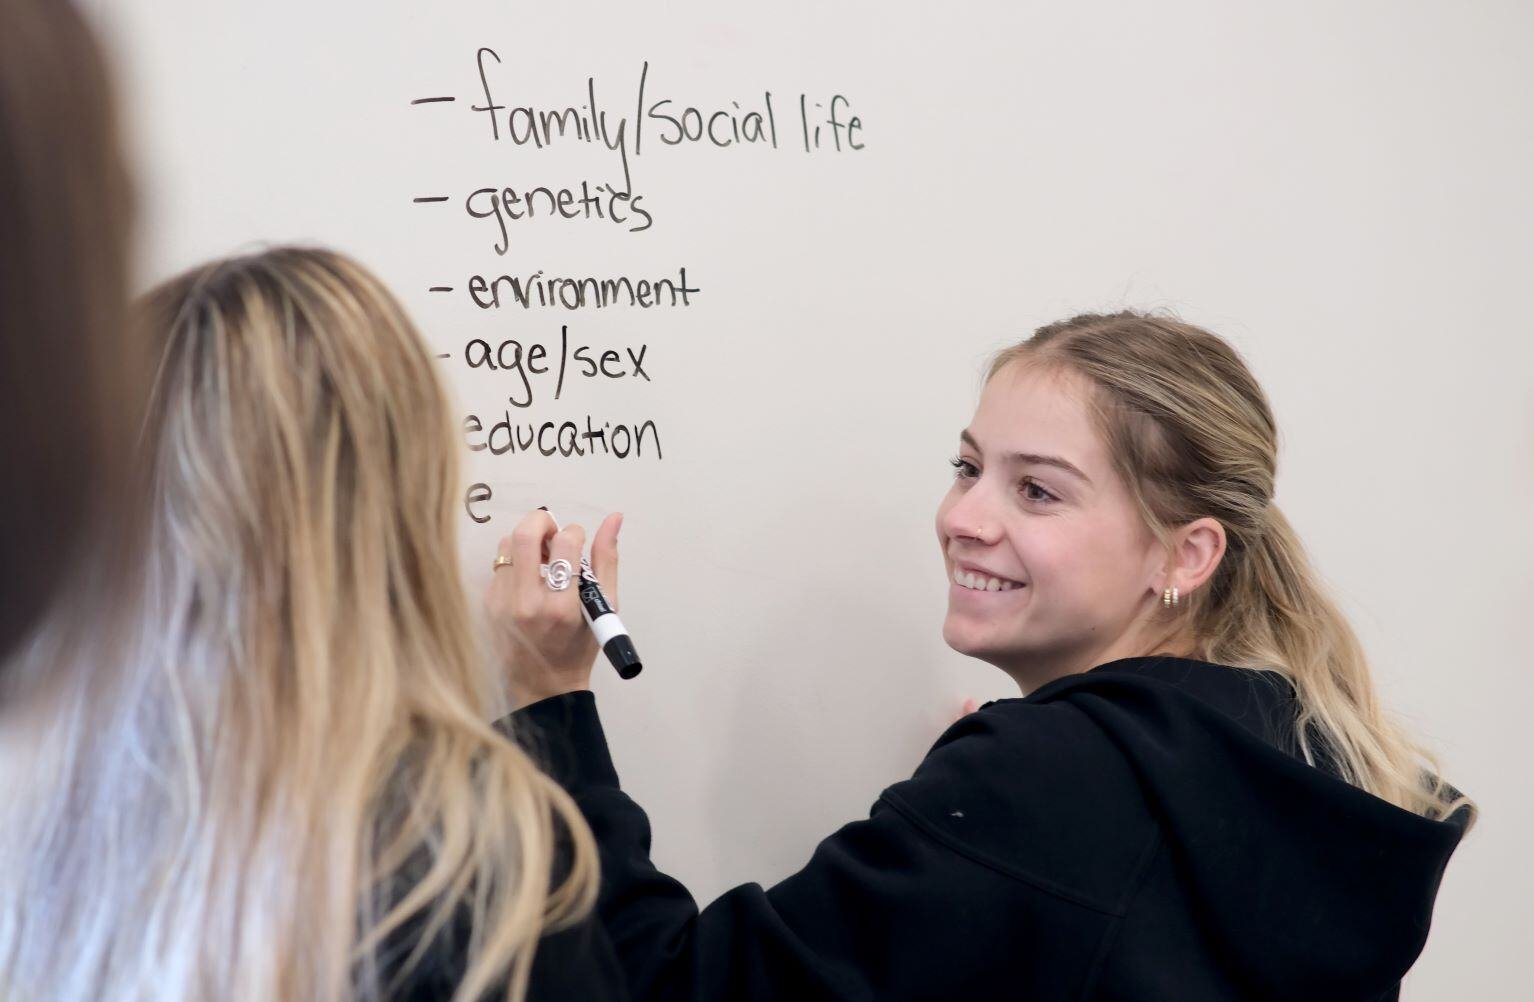 - family/social life
- genetics
- environment
- age/sex
education
e